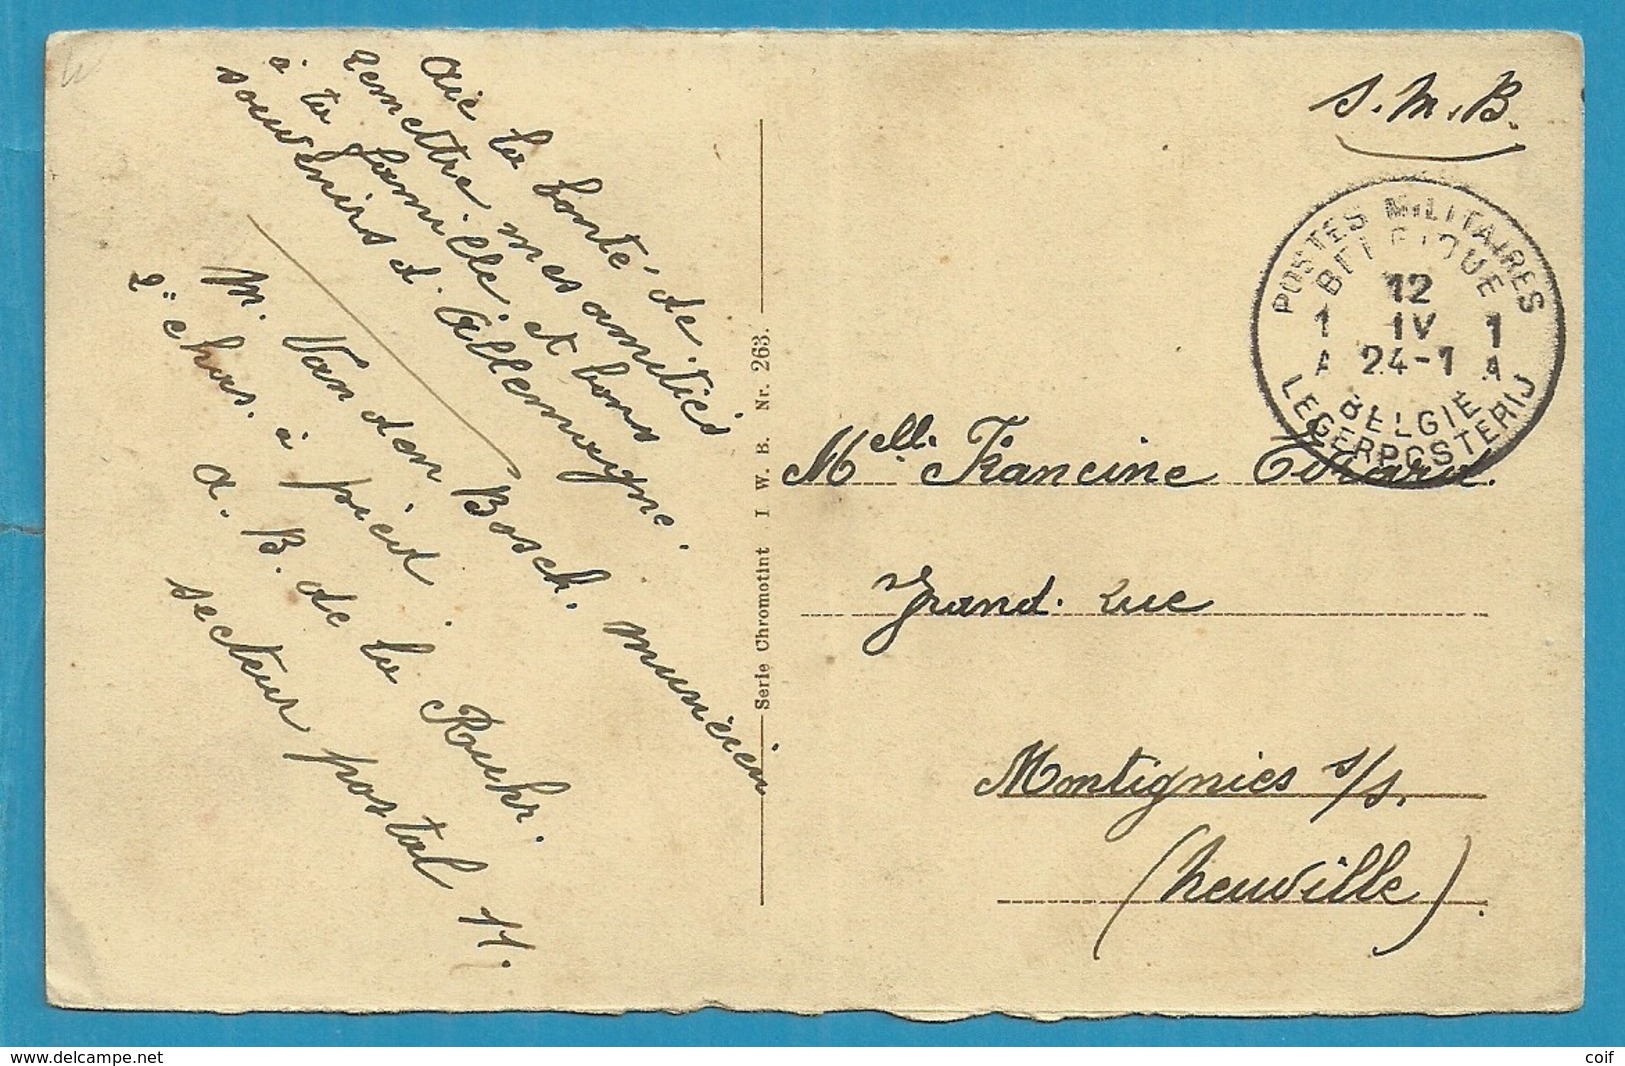 Aie la bonté de
remettre mes amitiés
à ta famille. et bons
souvenirs d'Allemagne.
M. Van den Bosch. musicien
2e chas. à pied.
A. B. de la Ruhr.
secteur postal 11.
Serie Chromotint I W. B. Nr. 263.
S. M. B.
POSTES MILITAIRES
BELGIQUE
12
1 IV 1
A 24-1 A
BELGIË
LEGERPOSTERIJ
Melle. Francine
Grand. rue
Montignies s/s.
(Neuville).
www.delcampe.net
coif